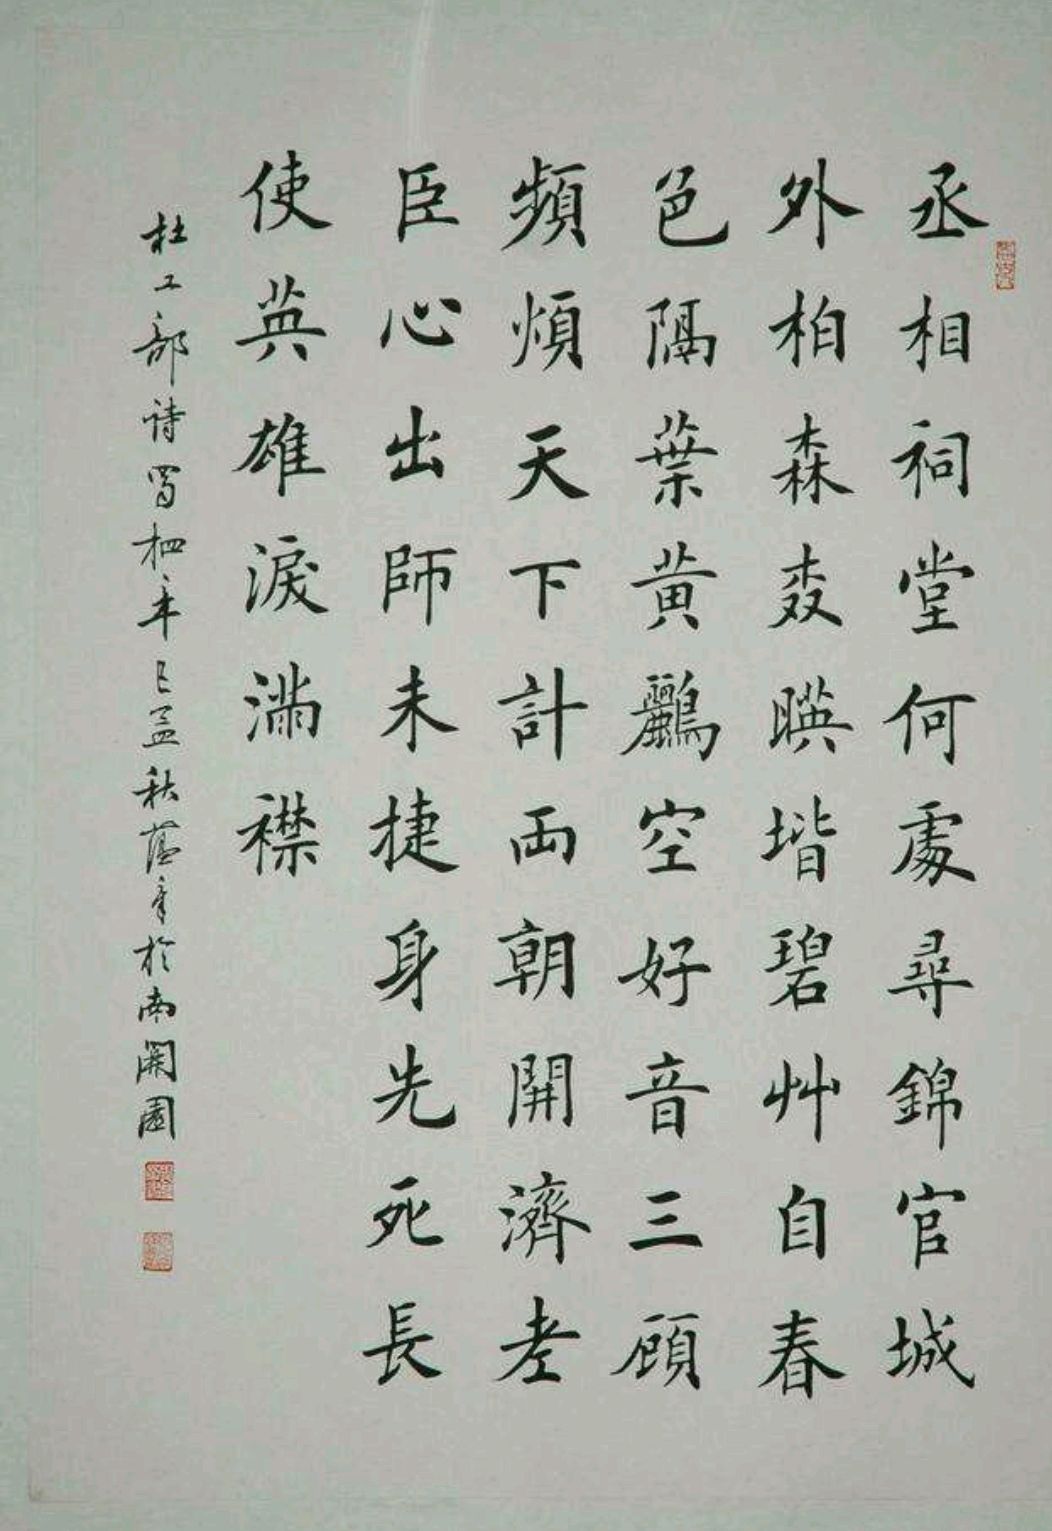 丞相祠堂何處尋錦官城
外柏森森暎堦碧艸自春
色隔葉黄鸝空好音三顧
頻煩天下計両朝開濟老
臣心出師未捷身先死長
使英雄淚滿襟
杜工部诗蜀相辛巳孟秋於南園